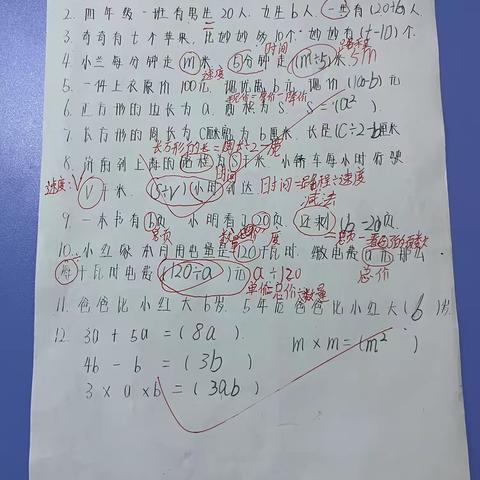 2. 四年级一班有男生20人,女生b人,一共有(20+b)人.
3. 奇奇有t个苹果,比妙妙多10个,妙妙有(t-10)个.
时间
4. 小兰每分钟走m米,5分钟走(m÷5)米 5m
速度
5. 一件上衣原价100元,现优惠b元,现价(100-b)元
现价=原价-降价
6. 正方形的边长为a,面积为S,S=(a²).
7. 长方形的周长为C厘米,宽为b厘米,长是(C÷2-b)厘米
长方形的长=周长÷2-宽
8. 济南到上海的路程为S千米,小轿车每小时行驶
时间
速度:V千米,(S÷V)小时到达 时间=路程÷速度
减法
9. 一本书有b页,小明看了20页,还剩(b-20)页.
总页
10. 小红家本月用电量是120千瓦时,缴电费a元,那么
每千瓦时电费(120÷a)元 a÷120 总价
单价=总价÷数量
11. 爸爸比小红大b岁,5年后爸爸比小红大(b)岁
12. 3a+5a=(8a)
m×m=(m²)
4b-b=(3b)
3×a×b=(3ab)